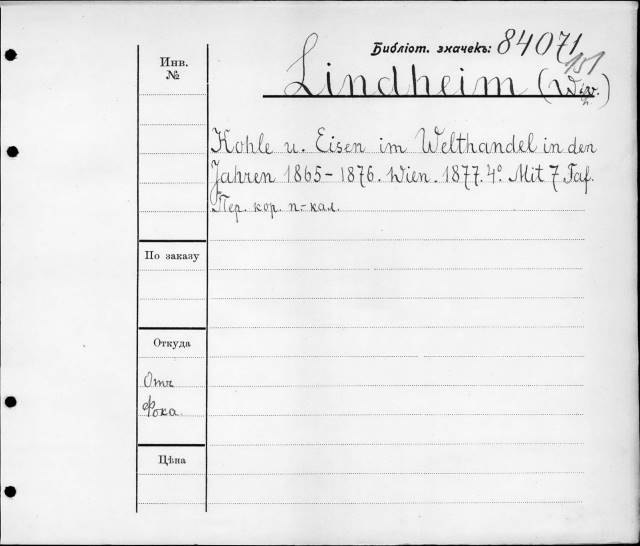 Библіот. значекъ: 84071
151
Инв.
№
Lindheim (W. v.)
Kohle u. Eisen im Welthandel in den
Jahren 1865-1876. Wien. 1877. 4°. Mit 7 Taf.
Пер. кор. п.-кал.
По заказу
Откуда
Отъ
Фока.
Цѣна